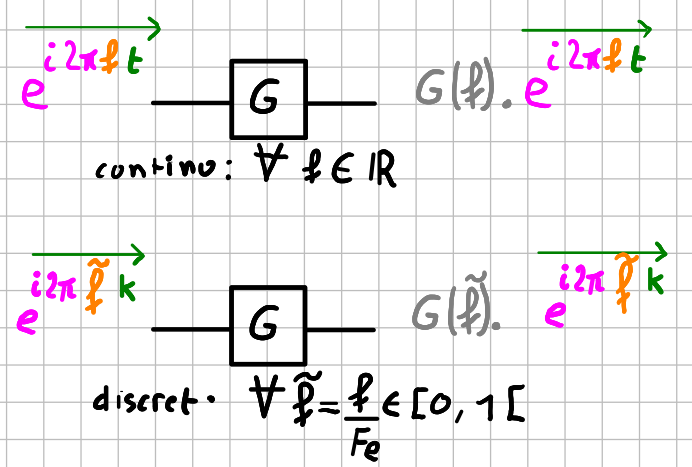 e^{i2πft} G G(f). e^{i2πft}
contino: ∀ f ∈ ℝ
e^{i2πf̃k} G G(f̃). e^{i2πf̃k}
discret. ∀ f̃ = f/Fe ∈ [0, 1[